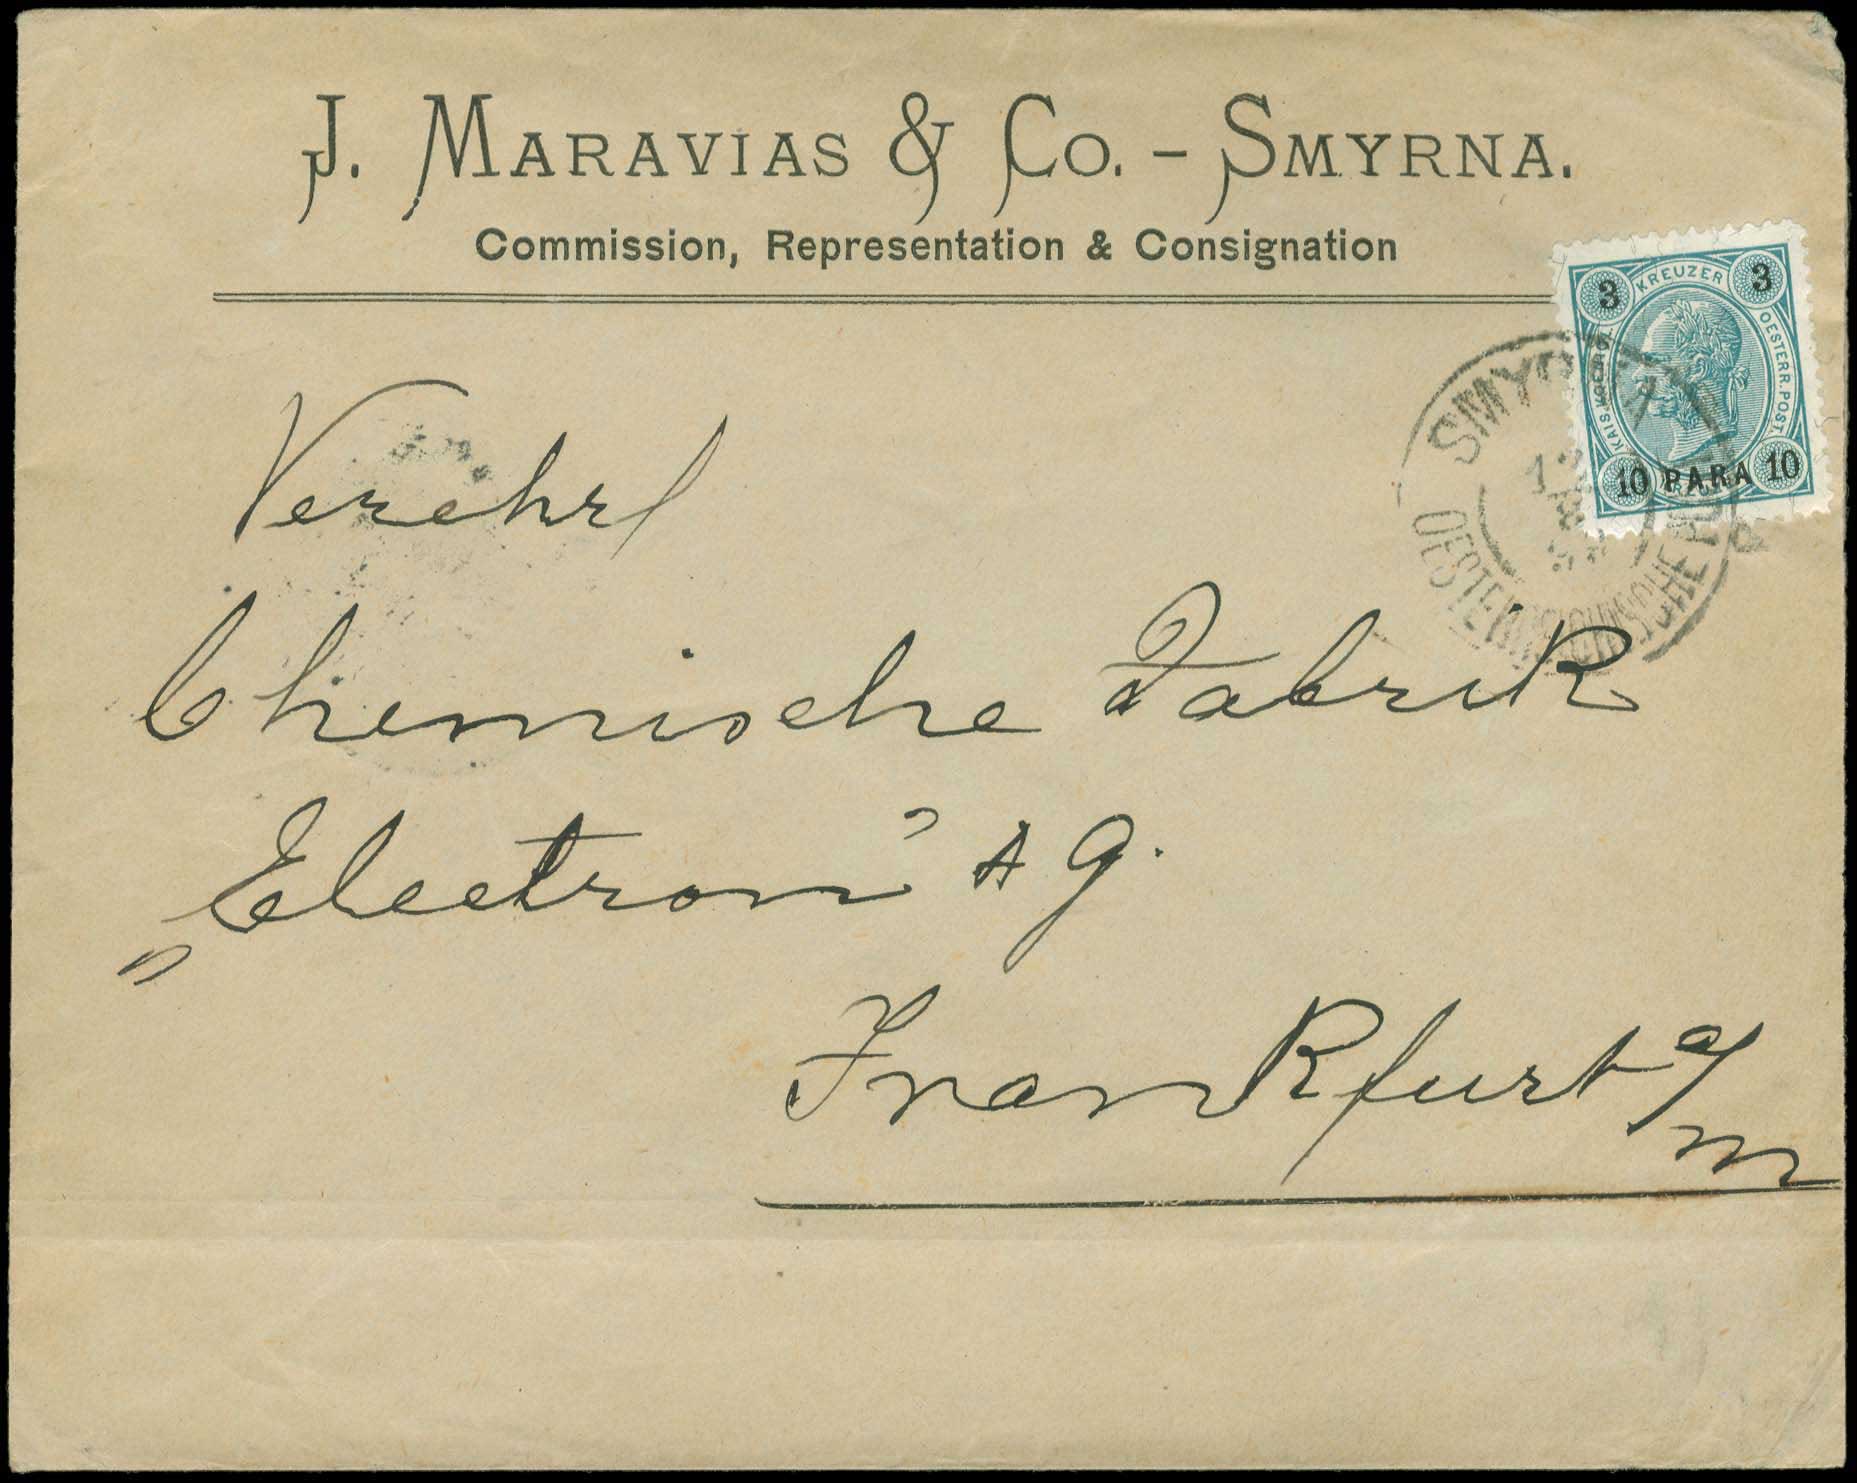 J. MARAVIAS & Co. – SMYRNA.
Commission, Representation & Consignation
3 KREUZER 3
KAIS. KOENIGL. OESTERR. POST.
10 PARA 10
SMYRNA
OESTERREICHISCHE POST
Verehrl
Chemische Fabrik
„Electron” A G.
Frankfurt a/m